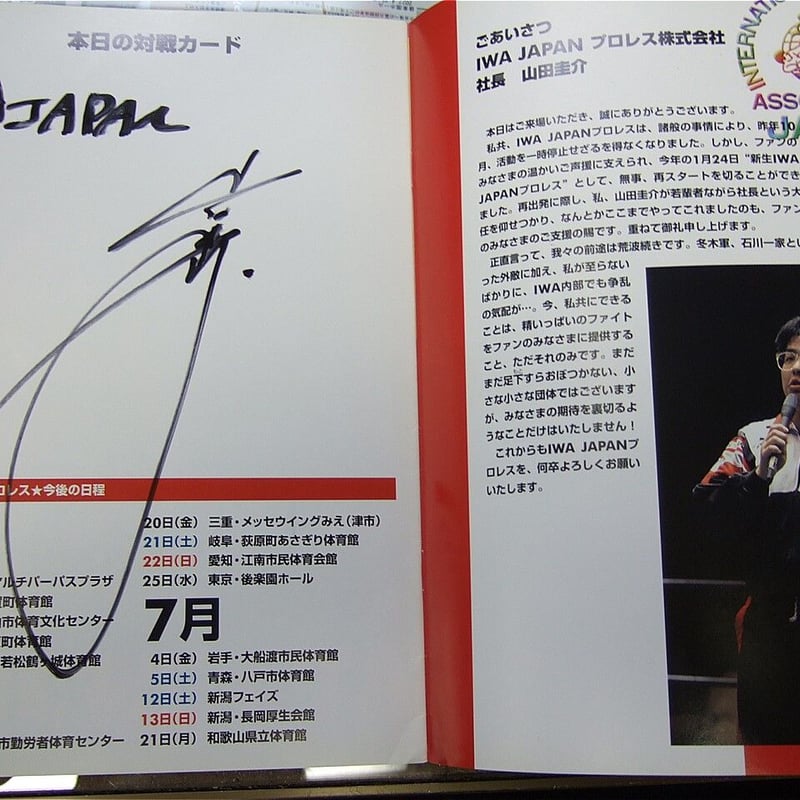 本日の対戦カード
JAPAN
プロレス★今後の日程
20日(金) 三重・メッセウイングみえ(津市)
21日(土) 岐阜・荻原町あさぎり体育館
22日(日) 愛知・江南市民体育会館
マルチパーパスプラザ 25日(水) 東京・後楽園ホール
町体育館
市体育文化センター
町体育館
若松鶴ヶ城体育館
市勤労者体育センター
7月
4日(金) 岩手・大船渡市民体育館
5日(土) 青森・八戸市体育館
12日(土) 新潟フェイズ
13日(日) 新潟・長岡厚生会館
21日(月) 和歌山県立体育館
ごあいさつ
IWA JAPAN プロレス株式会社
社長 山田圭介
INTERNATIO
ASSO
JA
本日はご来場いただき、誠にありがとうございます。
私共、IWA JAPANプロレスは、諸般の事情により、昨年10
月、活動を一時停止せざるを得なくなりました。しかし、ファンの
みなさまの温かいご声援に支えられ、今年の1月24日“新生IWA
JAPANプロレス”として、無事、再スタートを切ることができ
ました。再出発に際し、私、山田圭介が若輩者ながら社長という大
任を仰せつかり、なんとかここまでやってこれましたのも、ファン
のみなさまのご支援の賜です。重ねて御礼申し上げます。
正直言って、我々の前途は荒波続きです。冬木軍、石川一家とい
った外敵に加え、私が至らない
ばかりに、IWA内部でも争乱
の気配が…。今、私共にできる
ことは、精いっぱいのファイト
をファンのみなさまに提供する
こと、ただそれのみです。まだ
まだ足下すらおぼつかない、小
さな小さな団体ではございます
が、みなさまの期待を裏切るよ
うなことだけはいたしません！
これからもIWA JAPANプ
ロレスを、何卒よろしくお願い
いたします。